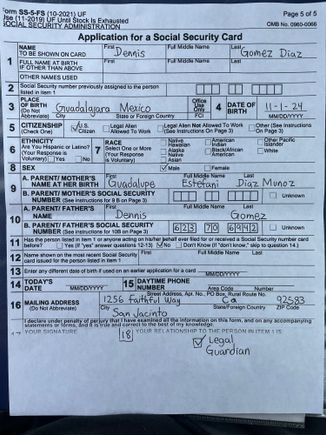 Form SS-5-FS (10-2021) UF
Use (11-2019) UF Until Stock Is Exhausted
SOCIAL SECURITY ADMINISTRATION
Page 5 of 5
OMB No. 0960-0066
Application for a Social Security Card
1 NAME TO BE SHOWN ON CARD First Dennis Full Middle Name Last Gomez Diaz
FULL NAME AT BIRTH IF OTHER THAN ABOVE First Full Middle Name Last
OTHER NAMES USED
2 Social Security number previously assigned to the person listed in item 1
3 PLACE OF BIRTH (Do Not Abbreviate) Guadalajara Mexico City State or Foreign Country Office Use Only FCI 4 DATE OF BIRTH 11-1-24 MM/DD/YYYY
5 CITIZENSHIP (Check One) U.S. Citizen Legal Alien Allowed To Work Legal Alien Not Allowed To Work (See Instructions On Page 3) Other (See Instructions On Page 3)
6 ETHNICITY Are You Hispanic or Latino? (Your Response is Voluntary) Yes No 7 RACE Select One or More (Your Response is Voluntary) Native Hawaiian Alaska Native Asian American Indian Black/African American Other Pacific Islander White
8 SEX Male Female
9 A. PARENT/ MOTHER'S NAME AT HER BIRTH First Guadalupe Full Middle Name Estefani Last Diaz Munoz
B. PARENT/ MOTHER'S SOCIAL SECURITY NUMBER (See instructions for 9 B on Page 3) Unknown
10 A. PARENT/ FATHER'S NAME First Dennis Full Middle Name Last Gomez
B. PARENT/ FATHER'S SOCIAL SECURITY NUMBER (See instructions for 10B on Page 3) 623 70 6942 Unknown
11 Has the person listed in item 1 or anyone acting on his/her behalf ever filed for or received a Social Security number card before?
Yes (If "yes" answer questions 12-13) No Don't Know (If "don't know," skip to question 14.)
12 Name shown on the most recent Social Security card issued for the person listed in item 1 First Full Middle Name Last
13 Enter any different date of birth if used on an earlier application for a card MM/DD/YYYY
14 TODAY'S DATE MM/DD/YYYY 15 DAYTIME PHONE NUMBER Area Code Number
16 MAILING ADDRESS (Do Not Abbreviate) Street Address, Apt. No., PO Box, Rural Route No.
1256 faithful Way Ca 92583
City State/Foreign Country ZIP Code
San Jacinto
I declare under penalty of perjury that I have examined all the information on this form, and on any accompanying statements or forms, and it is true and correct to the best of my knowledge.
17 YOUR SIGNATURE 18 YOUR RELATIONSHIP TO THE PERSON IN ITEM 1 IS:
Legal
Guardian